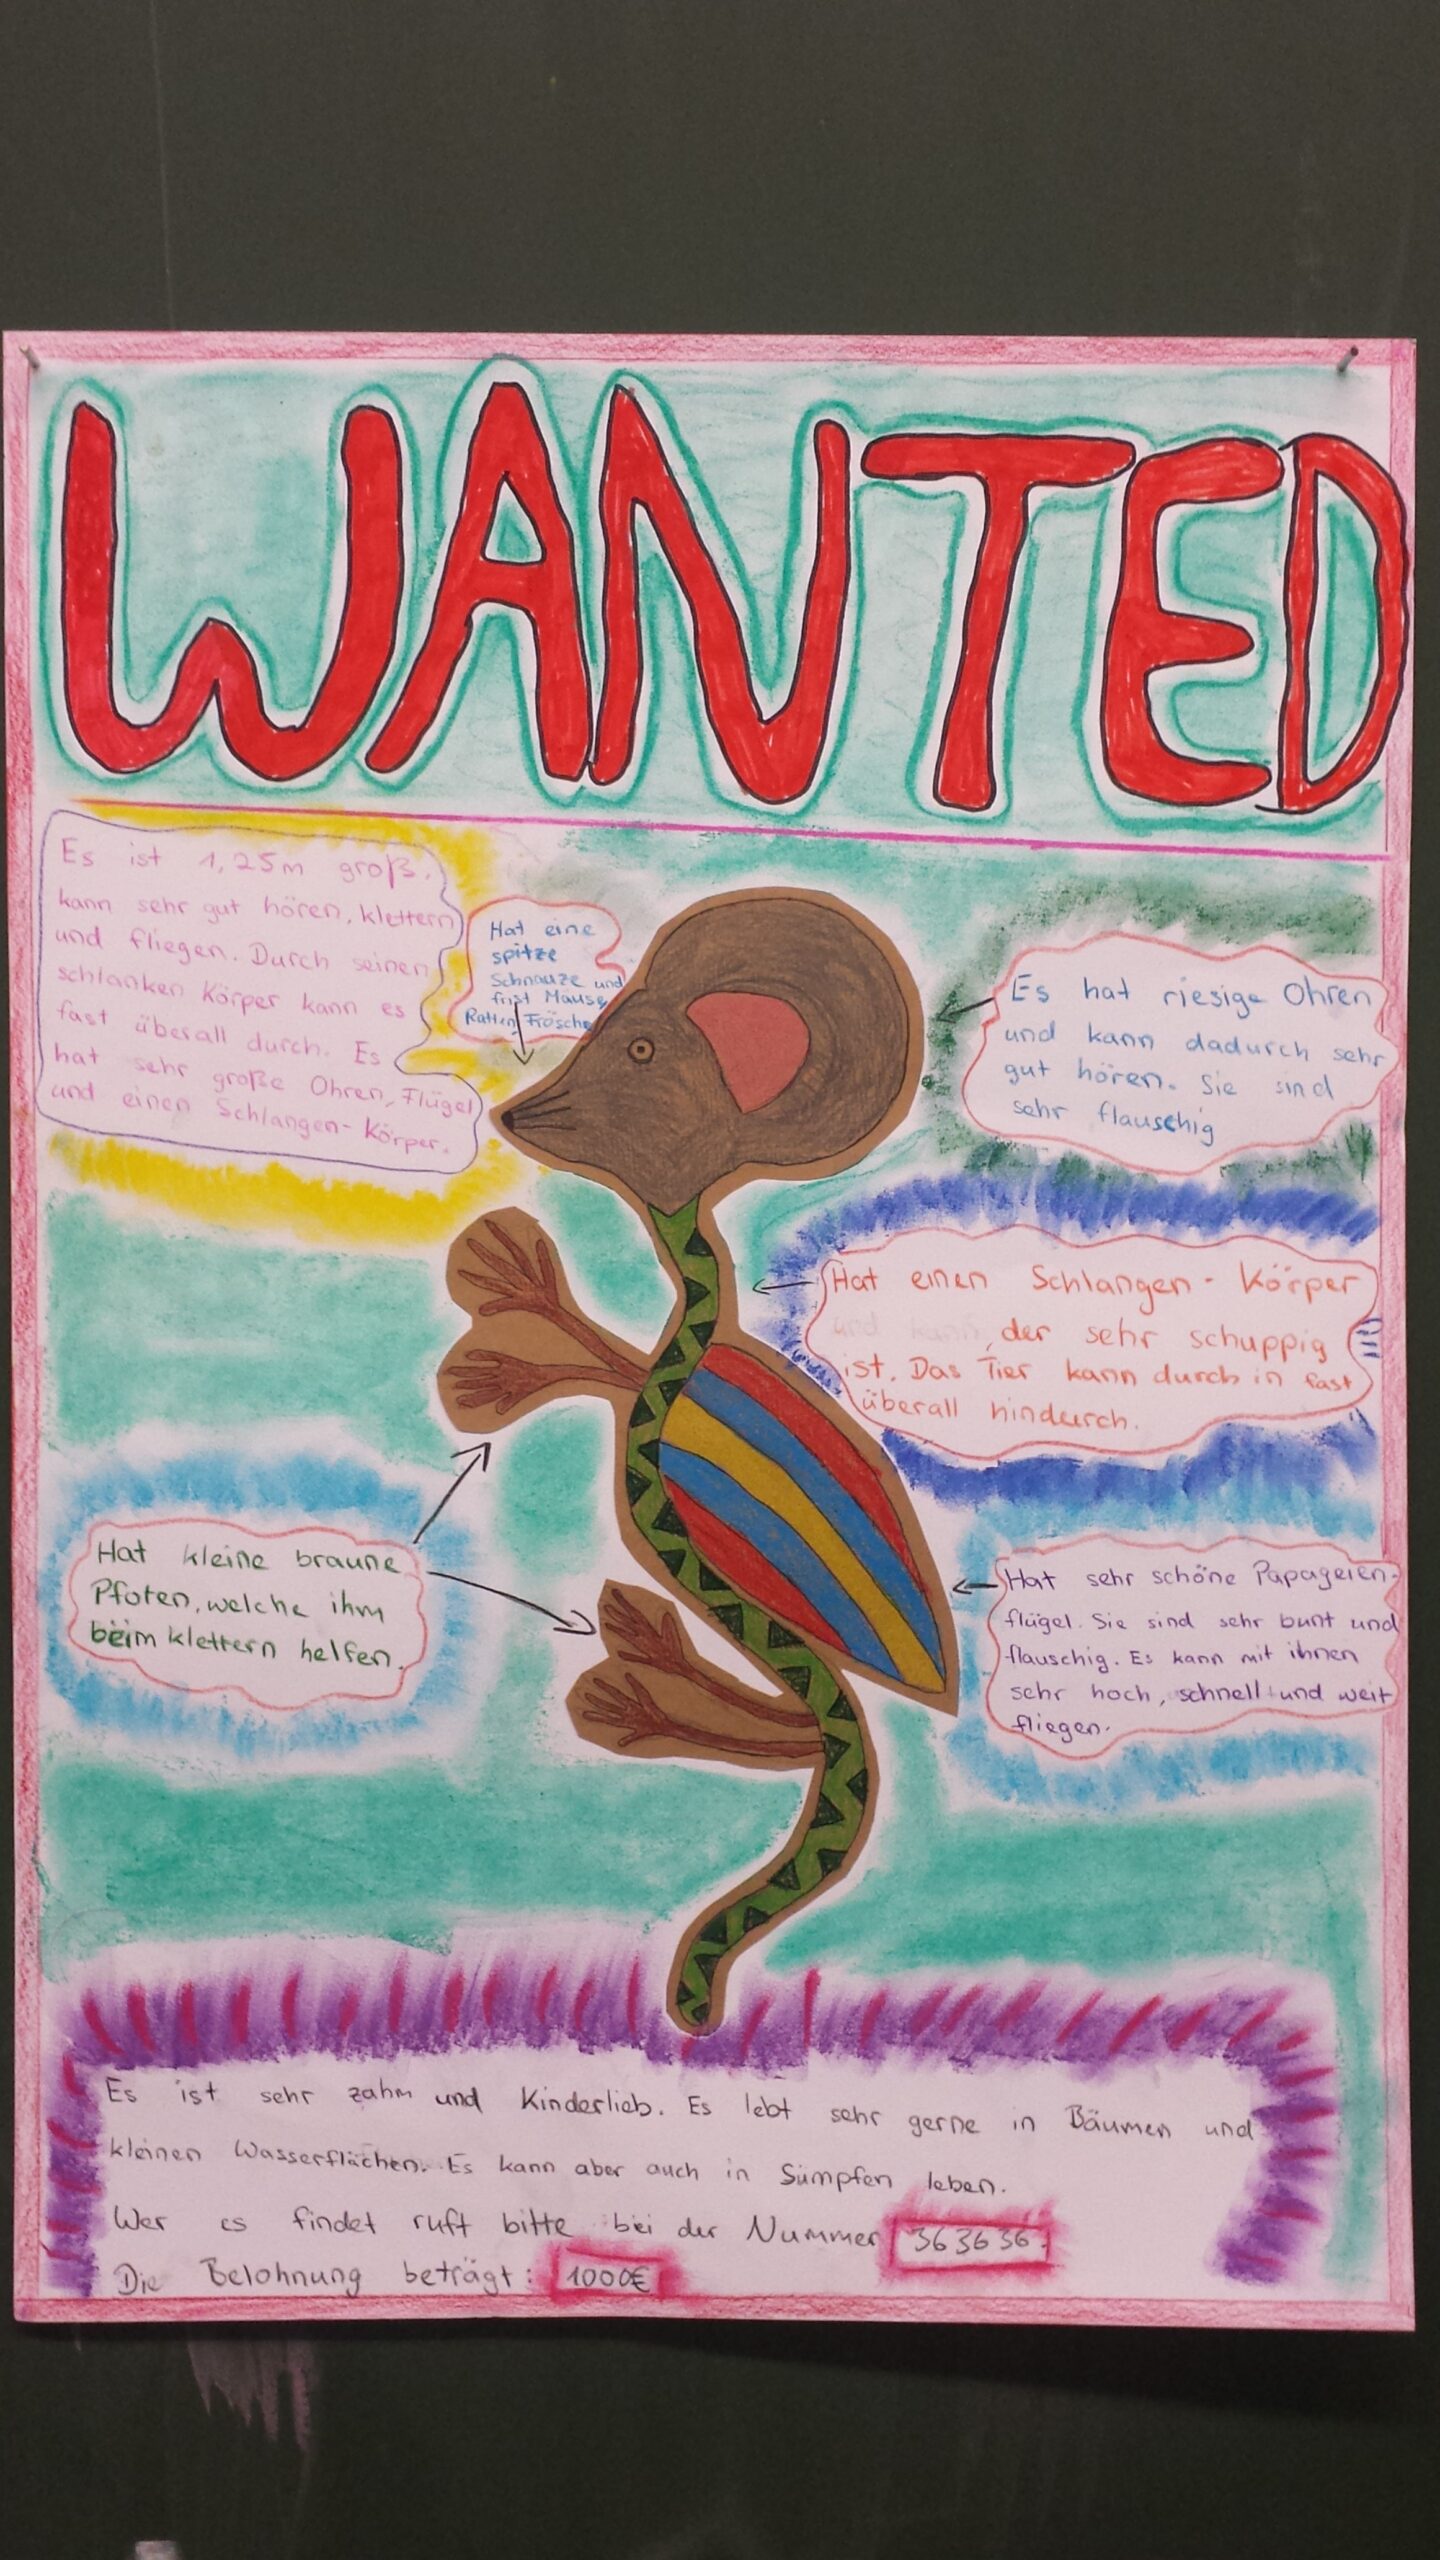 WANTED
Es ist 1,25m groß,
kann sehr gut hören, klettern
und fliegen. Durch seinen
schlanken Körper kann es
fast überall durch. Es
hat sehr große Ohren, Flügel
und einen Schlangen-Körper.
Hat eine
spitze
Schnauze und
frist Mäuse,
Ratten, Frösche
Es hat riesige Ohren
und kann dadurch sehr
gut hören. Sie sind
sehr flauschig
Hat einen Schlangen-Körper
und kann, der sehr schuppig
ist. Das Tier kann durch in fast
überall hindurch.
Hat kleine braune
Pfoten, welche ihm
beim klettern helfen.
Hat sehr schöne Papageien-
flügel. Sie sind sehr bunt und
flauschig. Es kann mit ihnen
sehr hoch, schnell und weit
fliegen.
Es ist sehr zahm und Kinderlieb. Es lebt sehr gerne in Bäumen und
kleinen Wasserflächen. Es kann aber auch in Sümpfen leben.
Wer es findet ruft bitte bei der Nummer 363636.
Die Belohnung beträgt: 1000€